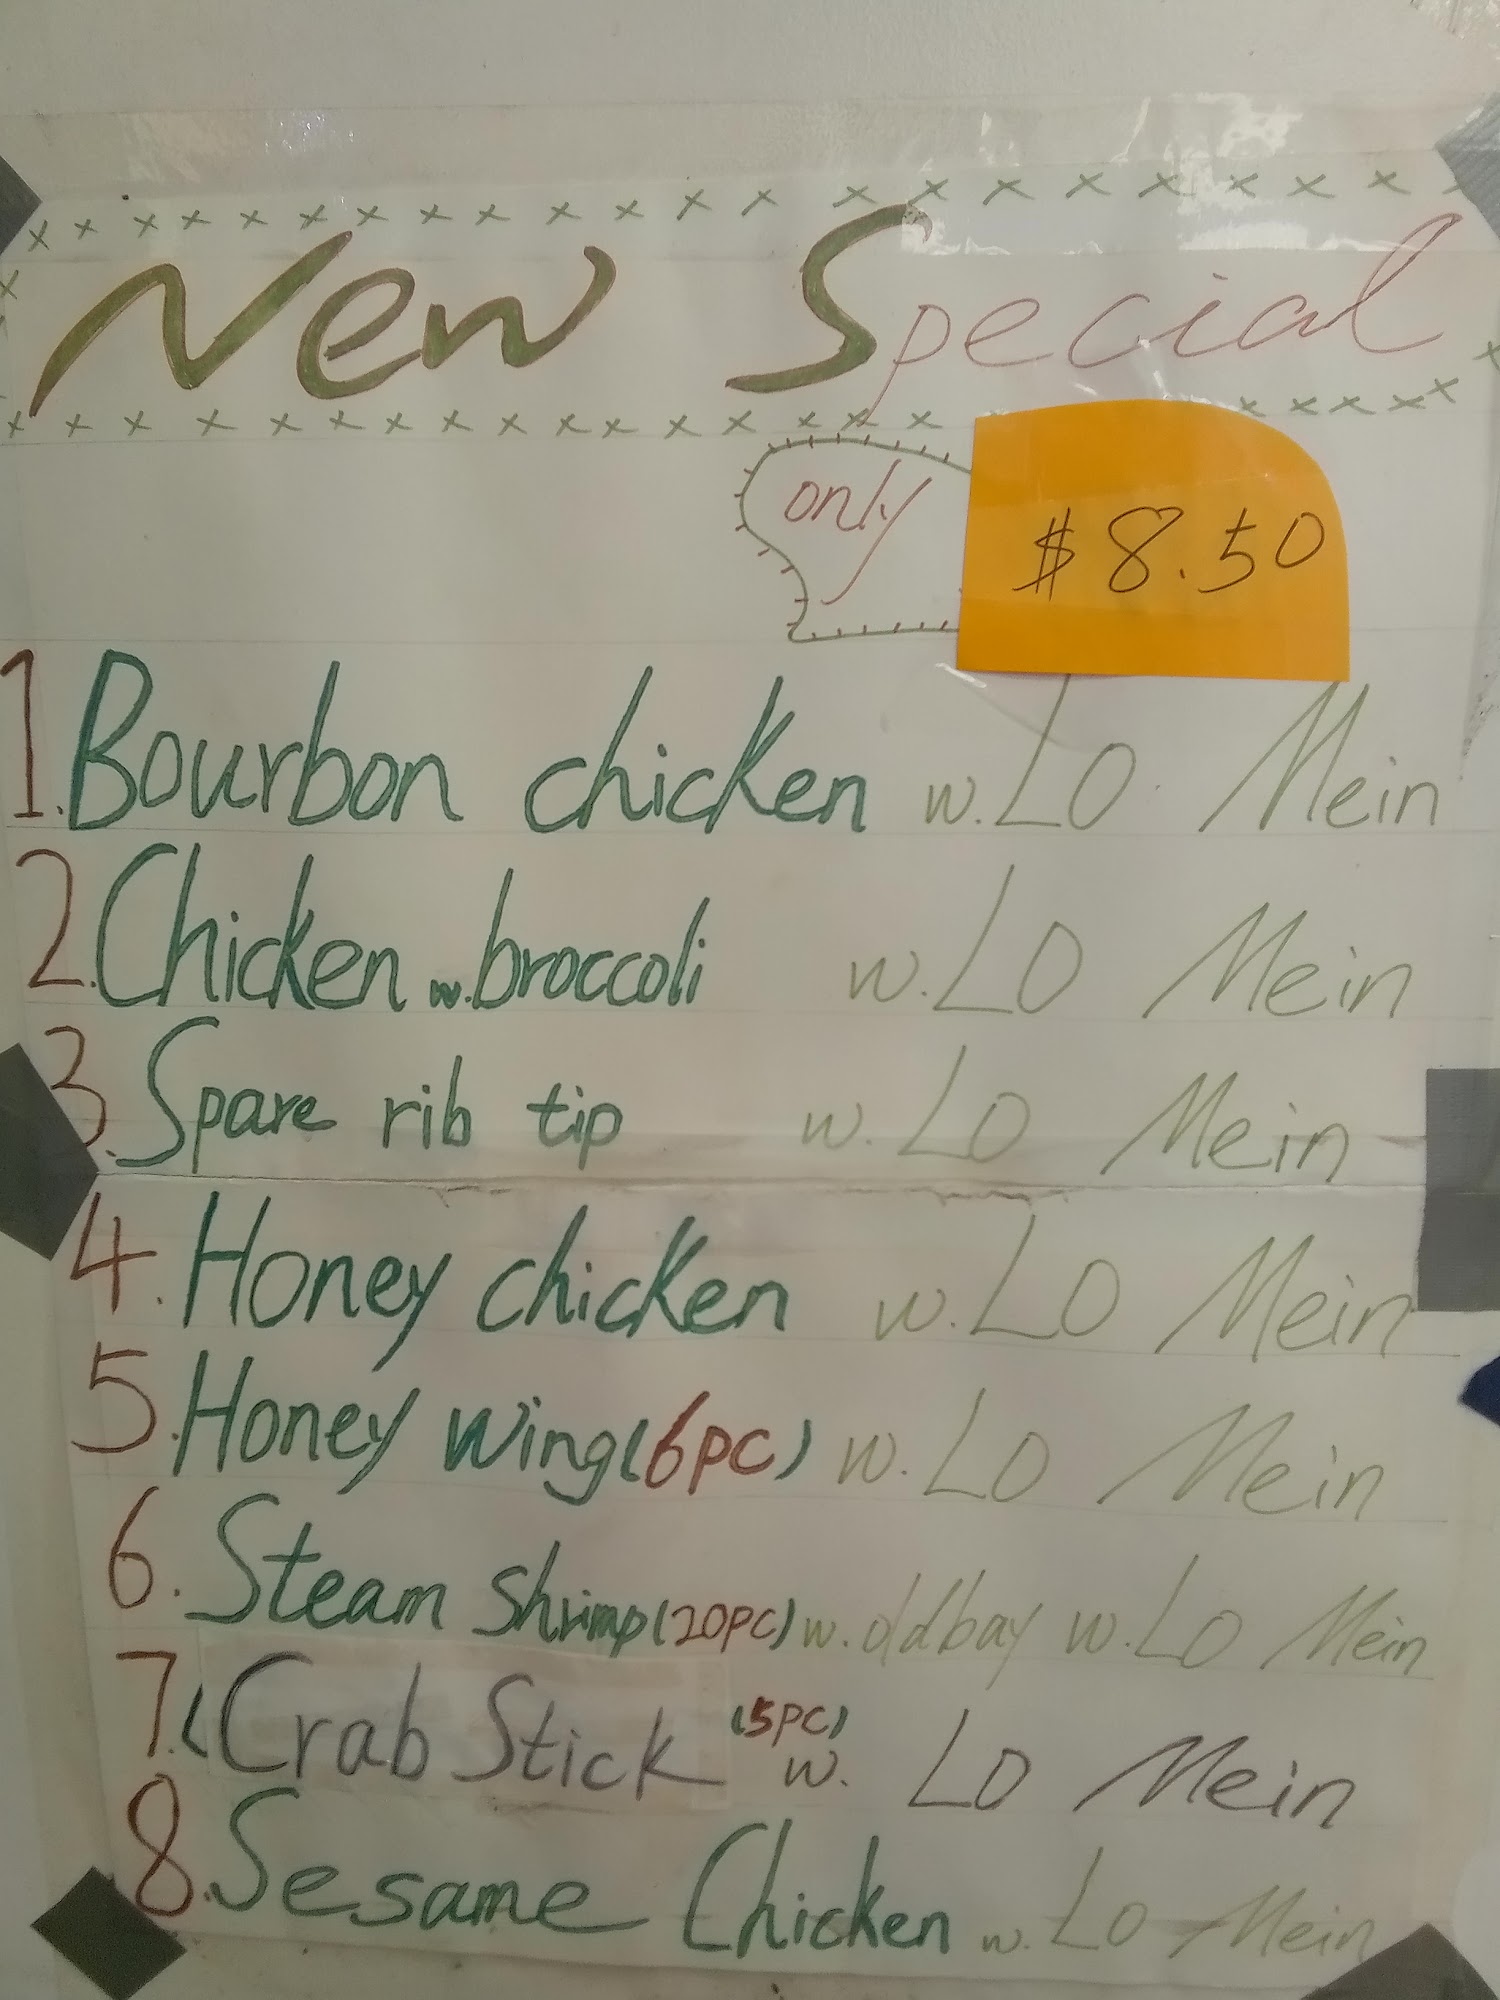 New Special
only $8.50
1. Bourbon chicken w. Lo Mein
2. Chicken w. broccoli w. Lo Mein
3. Spare rib tip w. Lo Mein
4. Honey chicken w. Lo Mein
5. Honey wing (6PC) w. Lo Mein
6. Steam Shrimp (20PC) w. old bay w. Lo Mein
7. Crab Stick (5PC) w. Lo Mein
8. Sesame Chicken w. Lo Mein